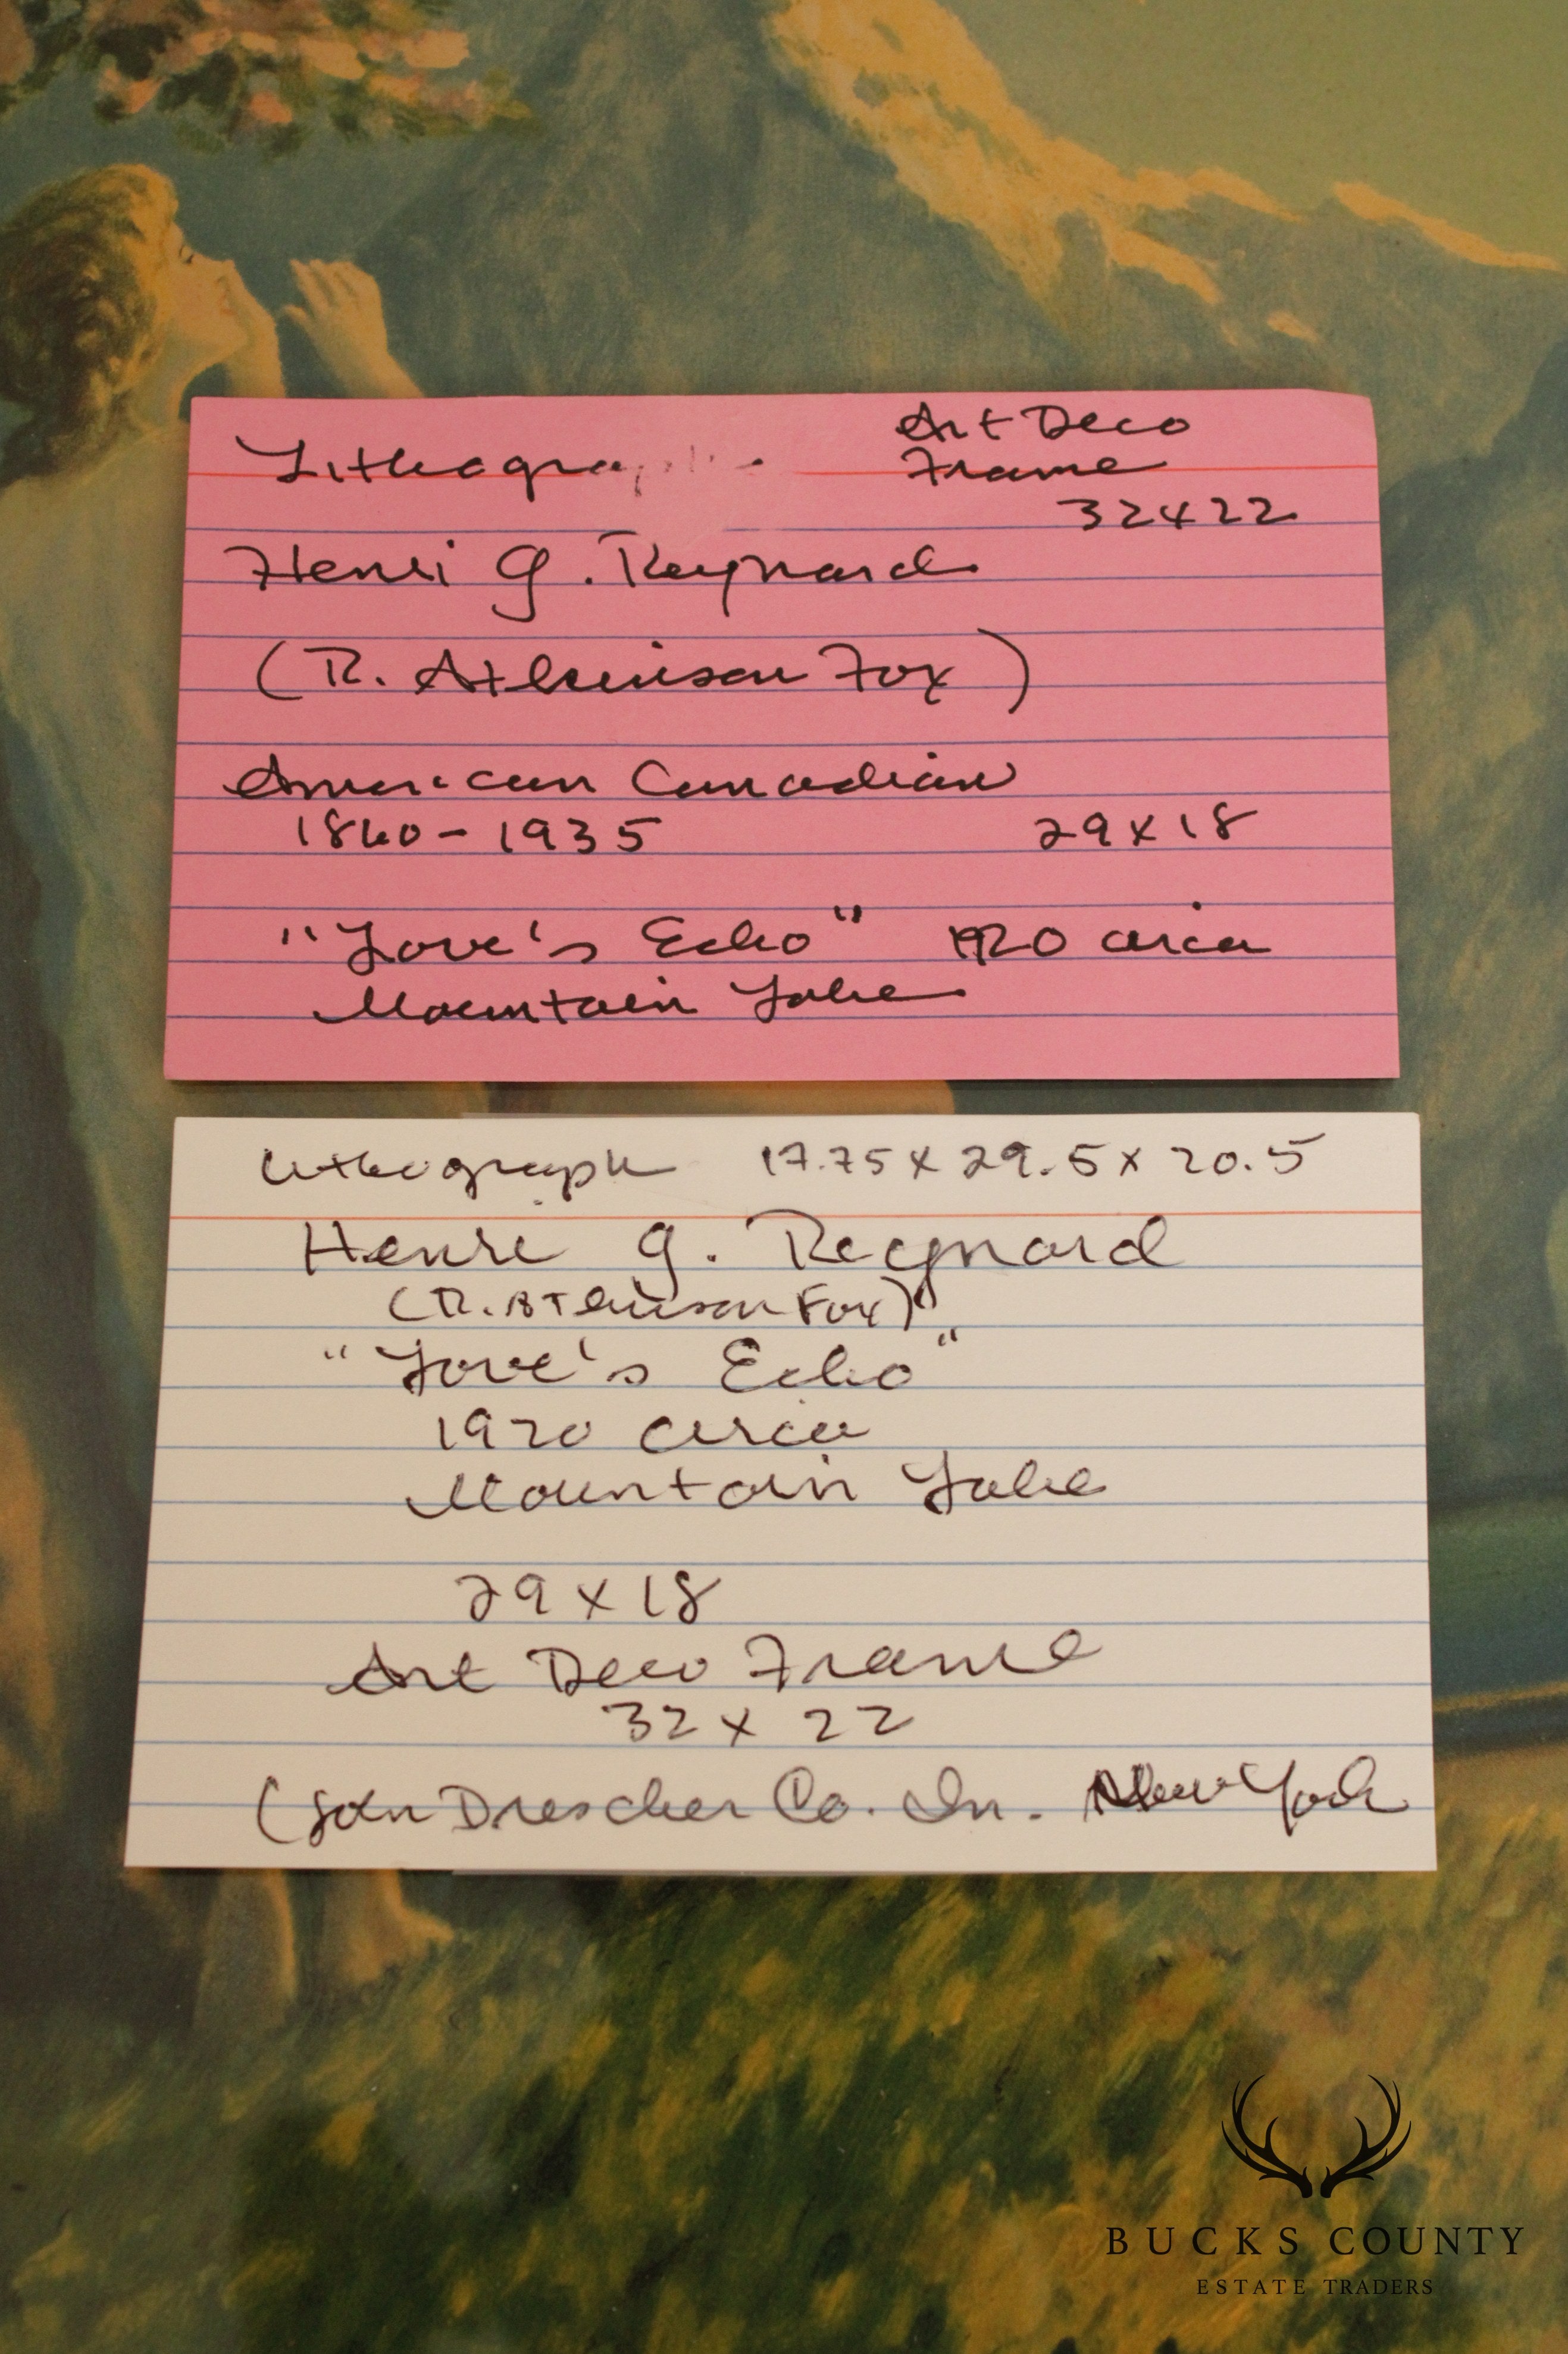 Art Deco
Lithograph Frame
32x22
Henri G. Reynard
(R. Atkinson Fox)
American Canadian
1860-1935 29x18
"Love's Echo" 1920 circa
Mountain Lake
Lithograph 17.75x29.5x20.5
Henri G. Reynard
(R. Atkinson Fox)
"Love's Echo"
1920 circa
Mountain Lake
29x18
Art Deco Frame
32x22
Drescher Co. In. New York
BUCKS COUNTY
ESTATE TRADERS